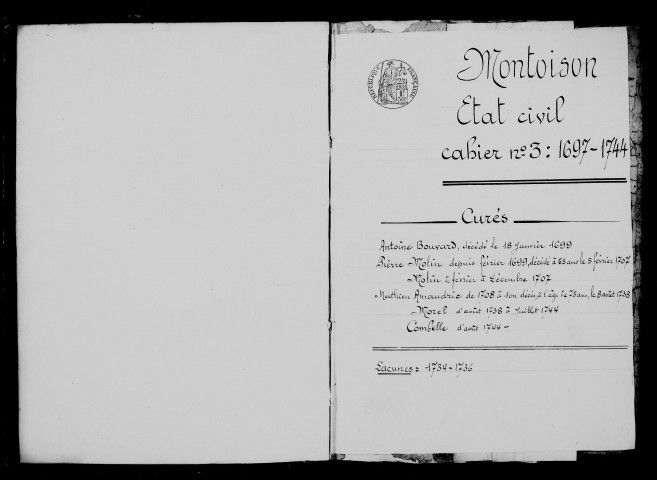 RÉPUBLIQUE FRANÇAISE
Montoison
Etat civil
cahier n° 3 : 1697-1744
Curés
Antoine Bouvard, décédé le 18 Janvier 1699
Pierre Molin depuis février 1699, décédé à 63 ans le 5 février 1707
Molin 2 février à Décembre 1707
Matthieu Amaudric de 1708 à son décès, à l'âge de 75 ans, le 8 août 1738
Morel d'août 1738 à Juillet 1744
Combelle d'août 1744 -
Lacunes = 1734-1736